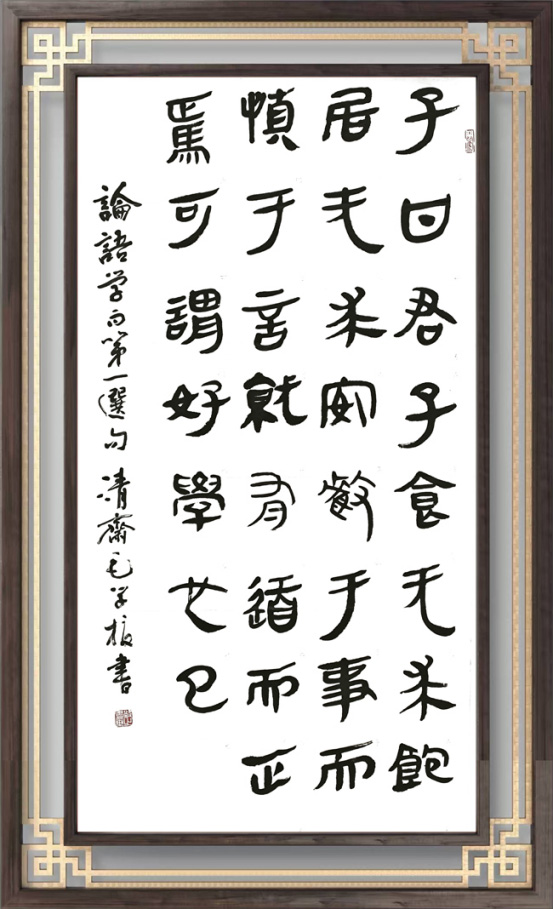 子曰君子食无求飽
居无求安敏于事而
慎于言就有道而正
焉可謂好學也已
論語学而第一選句 清齋毛学振書